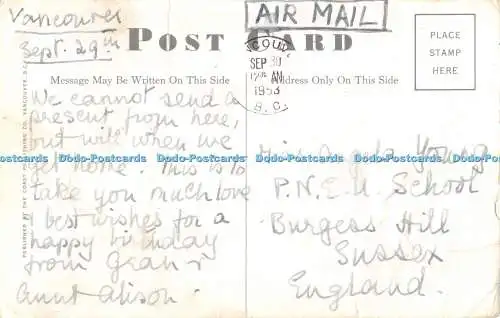 Vancouver
Sept. 29th
AIR MAIL
POST CARD
VANCOUVER
SEP 30
12 AM
1953
B.C.
PLACE
STAMP
HERE
Message May Be Written On This Side
Address Only On This Side
We cannot send a
present from here,
but will when we
get home. This is to
take you much love
& best wishes for a
happy birthday
from Gran &
Aunt Alison.
Miss Angela Young
P.N.E.U. School
Burgess Hill
Sussex
England.
Dodo-Postcards Dodo-Postcards Dodo-Postcards Dodo-Postcards Dodo-Postcards Dodo-Postcards
PUBLISHED BY THE COAST PUBLISHING CO. VANCOUVER, B.C.